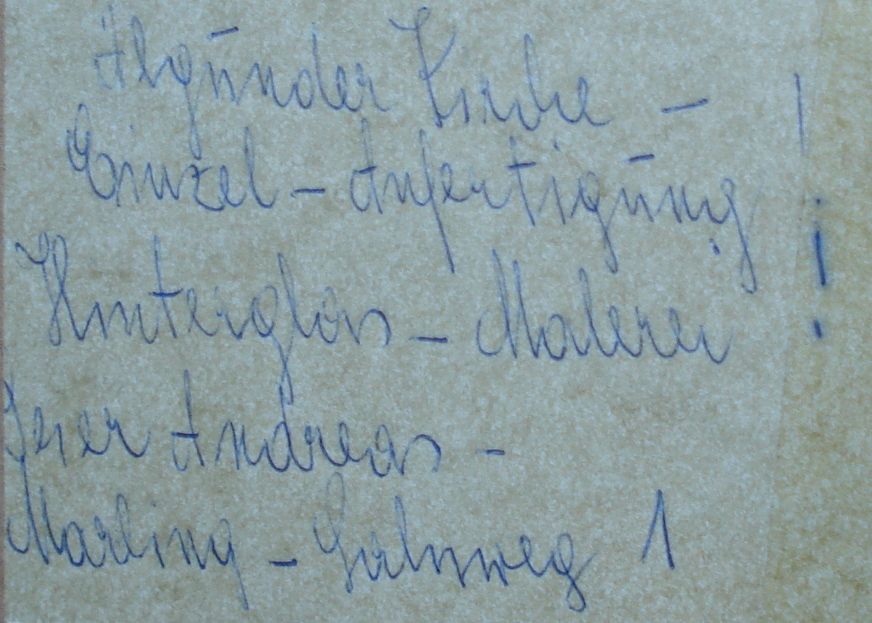 Algunder Kirche –
Einzel – Anfertigung !
Hinterglas – Malerei !
Andreas –
Marling – 1